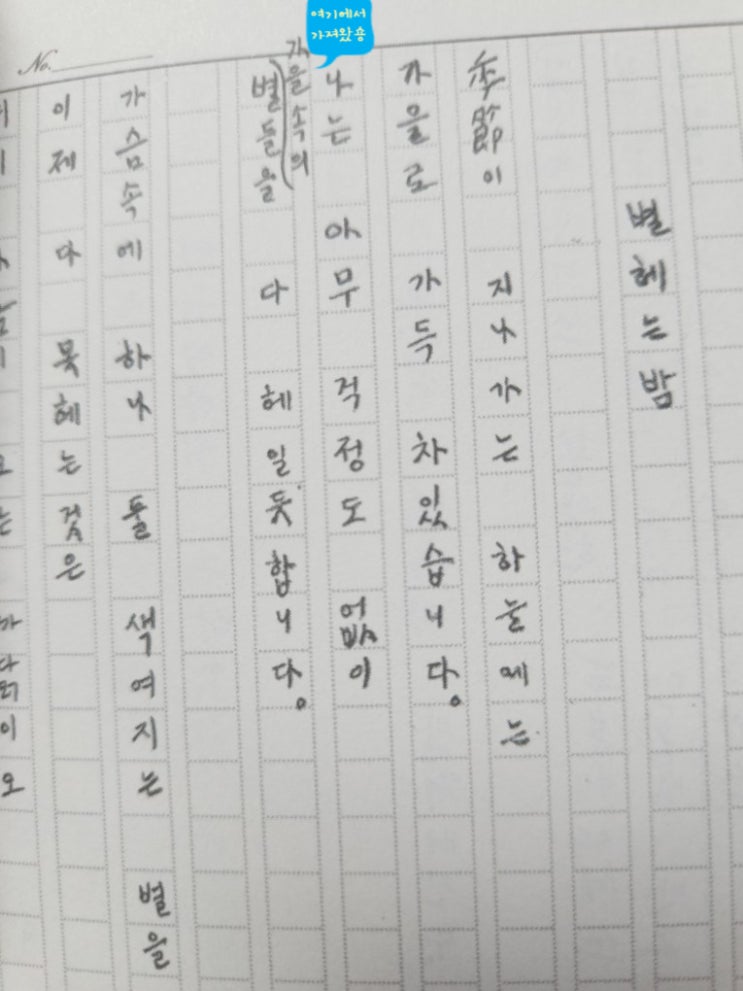 No.
여기에서
가져왔용
별헤는밤
季節이 지나가는 하늘에는
가을로 가득 차있습니다。
나는 아무 걱정도 없이
가을속의
별들을 다 헤일듯합니다。
가슴속에 하나 둘 색여지는 별을
이제 다 못헤는것은